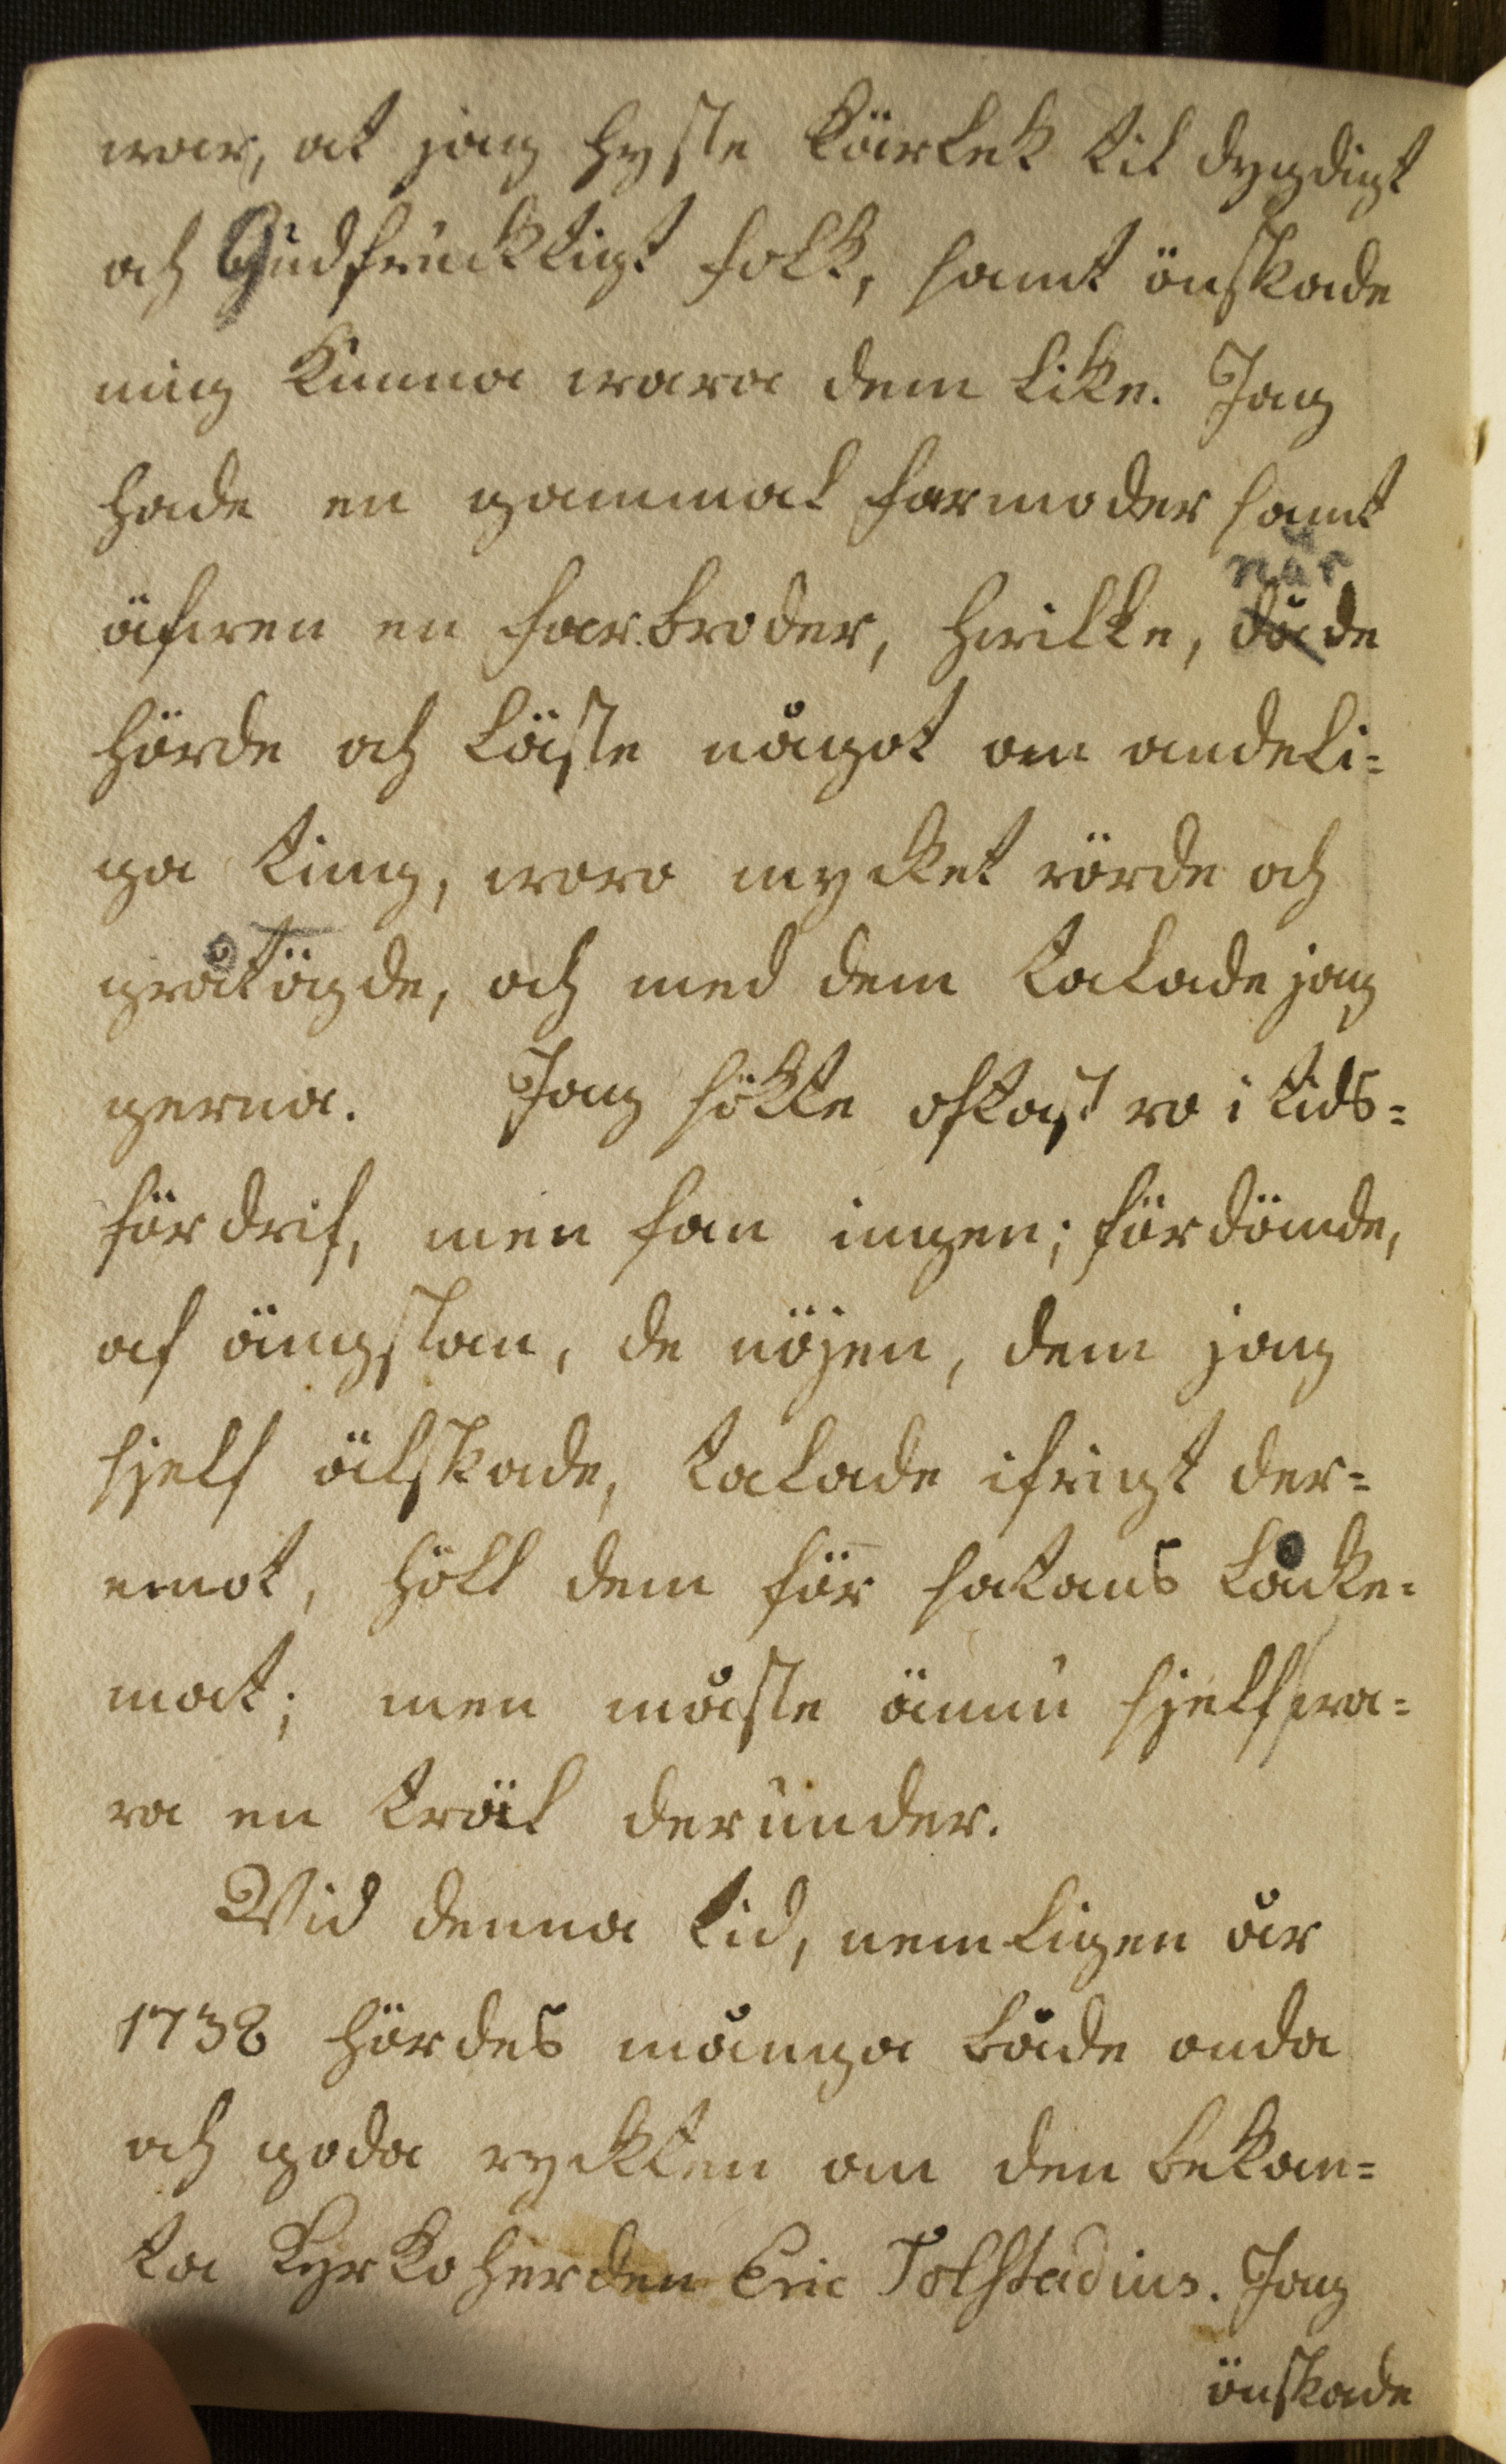 war, at jag hyste kärlek til dygdigt
och Gudfrucktigt folk, samt önskade
mig kunna wara dem like. Jag
hade en gammal farmoder samt
äfwen en farbroder, hwilke, då de
när
hörde och läste något om andeli=
ga ting, woro mycket rörde och
gråtögde, och med dem talade jag
gerna. Jag sökte oftast ro i tids=
fördrif, men fan ingen; fördömde,
af ängslan, de nöjen, dem jag
sjelf älskade, talade ifrigt der=
emot, höll dem för satans låcke=
mat; men måste ännu sjelf wa=
ra en träl derunder.
Wid denna tid, nemligen år
1738 hördes många både onda
och goda ryckten om den bekan=
ta Kyrkoherden Eric Tolstadius. Jag
önskade